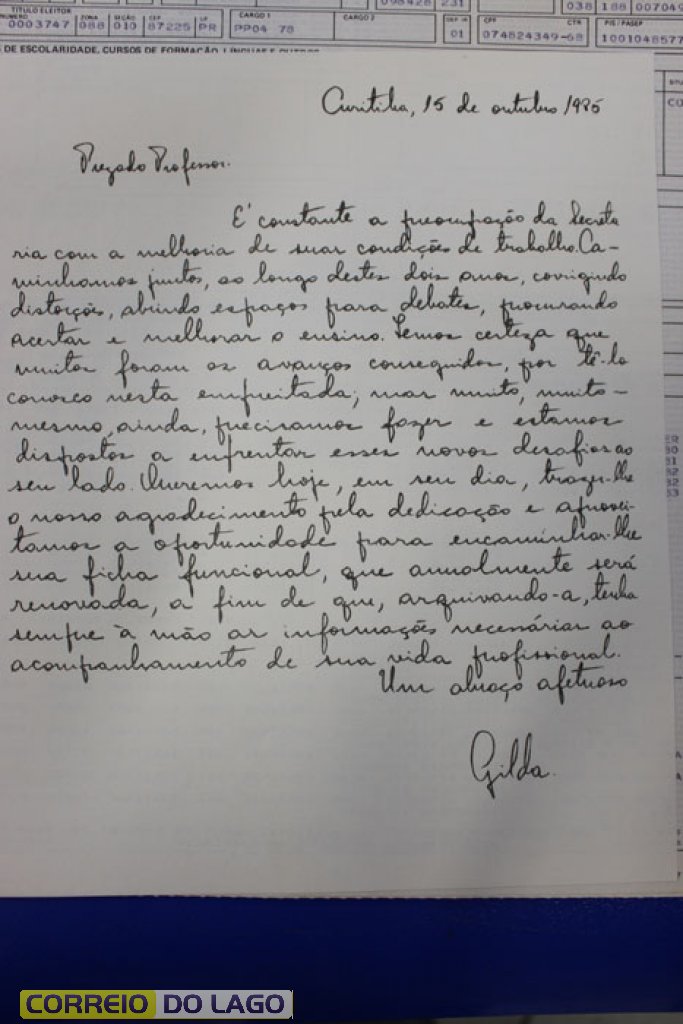 098428 231
038 188 007049
TÍTULO ELEITOR
NÚMERO ZONA SEÇÃO CEP UF CARGO 1 CARGO 2 CPF CTR PIS/PASEP
0003747 088 010 87225 PR PP04 78 01 074824349-68 1001048577
DE ESCOLARIDADE, CURSOS DE FORMAÇÃO, LÍNGUAS E OUTROS
Curitiba, 15 de outubro 1985
Prezado Professor.
É constante a preocupação da Secreta
ria com a melhoria de suas condições de trabalho. Ca-
minhamos juntos, ao longo destes dois anos, corrigindo
distorções, abrindo espaços para debates, procurando
acertar e melhorar o ensino. Temos certeza que
muitos foram os avanços conseguidos, por tê-lo
conosco nesta empreitada; mas muito, muito
mesmo, ainda, precisamos fazer e estamos
dispostos a enfrentar esses novos desafios ao
seu lado. Queremos hoje, em seu dia, trazer-lhe
o nosso agradecimento pela dedicação e aprovei-
tamos a oportunidade para encaminhar-lhe
sua ficha funcional, que anualmente será
renovada, a fim de que, arquivando-a, tenha
sempre à mão as informações necessárias ao
acompanhamento de sua vida profissional.
Um abraço afetuoso
Gilda.
CORREIO DO LAGO